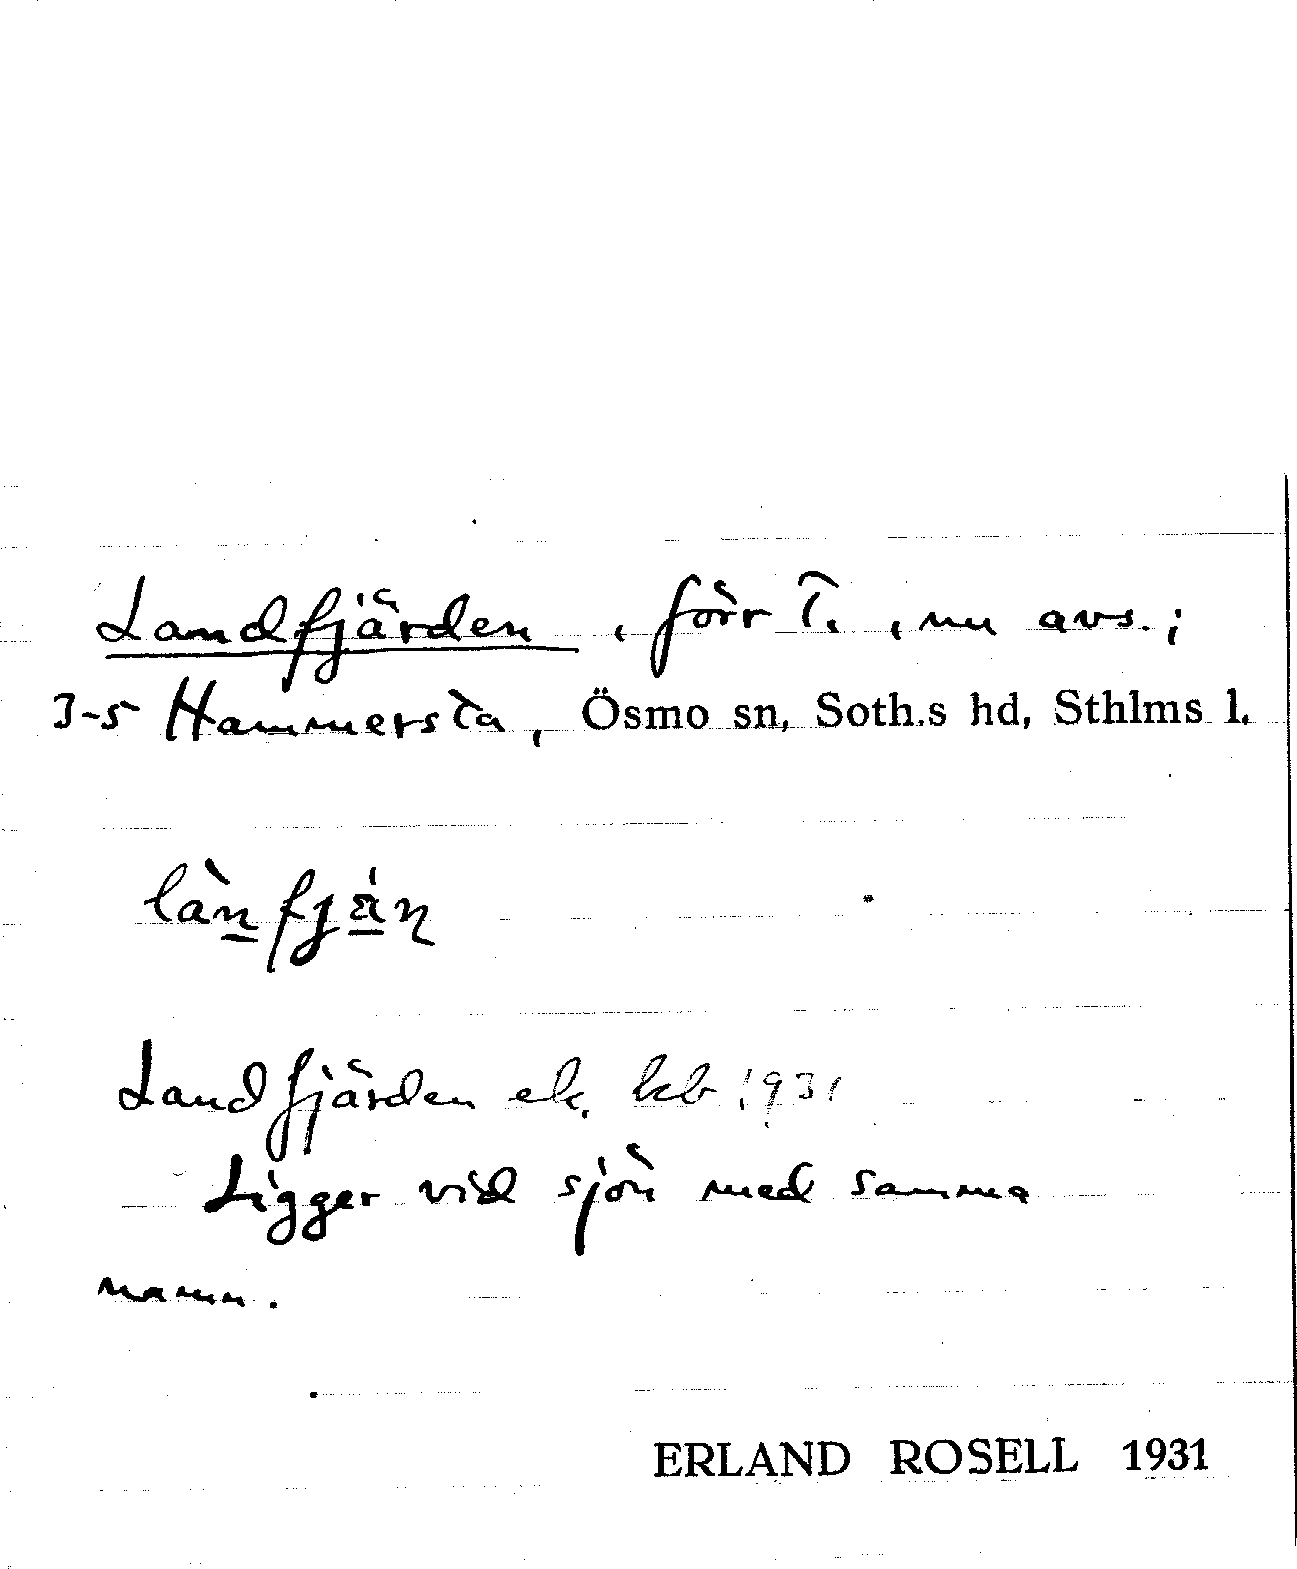 Landfjärden, förr T., nu avs.;
3-5 Hammersta, Ösmo sn, Soth.s hd, Sthlms l.
Landfjärden ek. kb 1931
Ligger vid sjön med samma
namn.
ERLAND ROSELL 1931